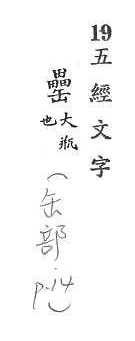 19五經文字
罍大瓶也(缶部 p.14)